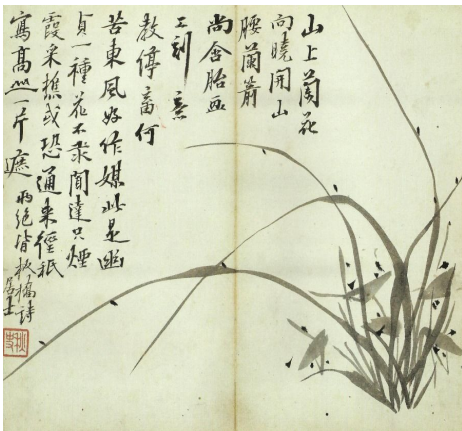 山上蘭花
向曉開山
腰蘭箭
尚含胎畫
工刻意
教停畜何
苦東風好作媒此是幽
貞一種花不求聞達只煙
霞采樵或恐通來徑祇
寫高山一片遮 兩絕皆板橋詩
居士